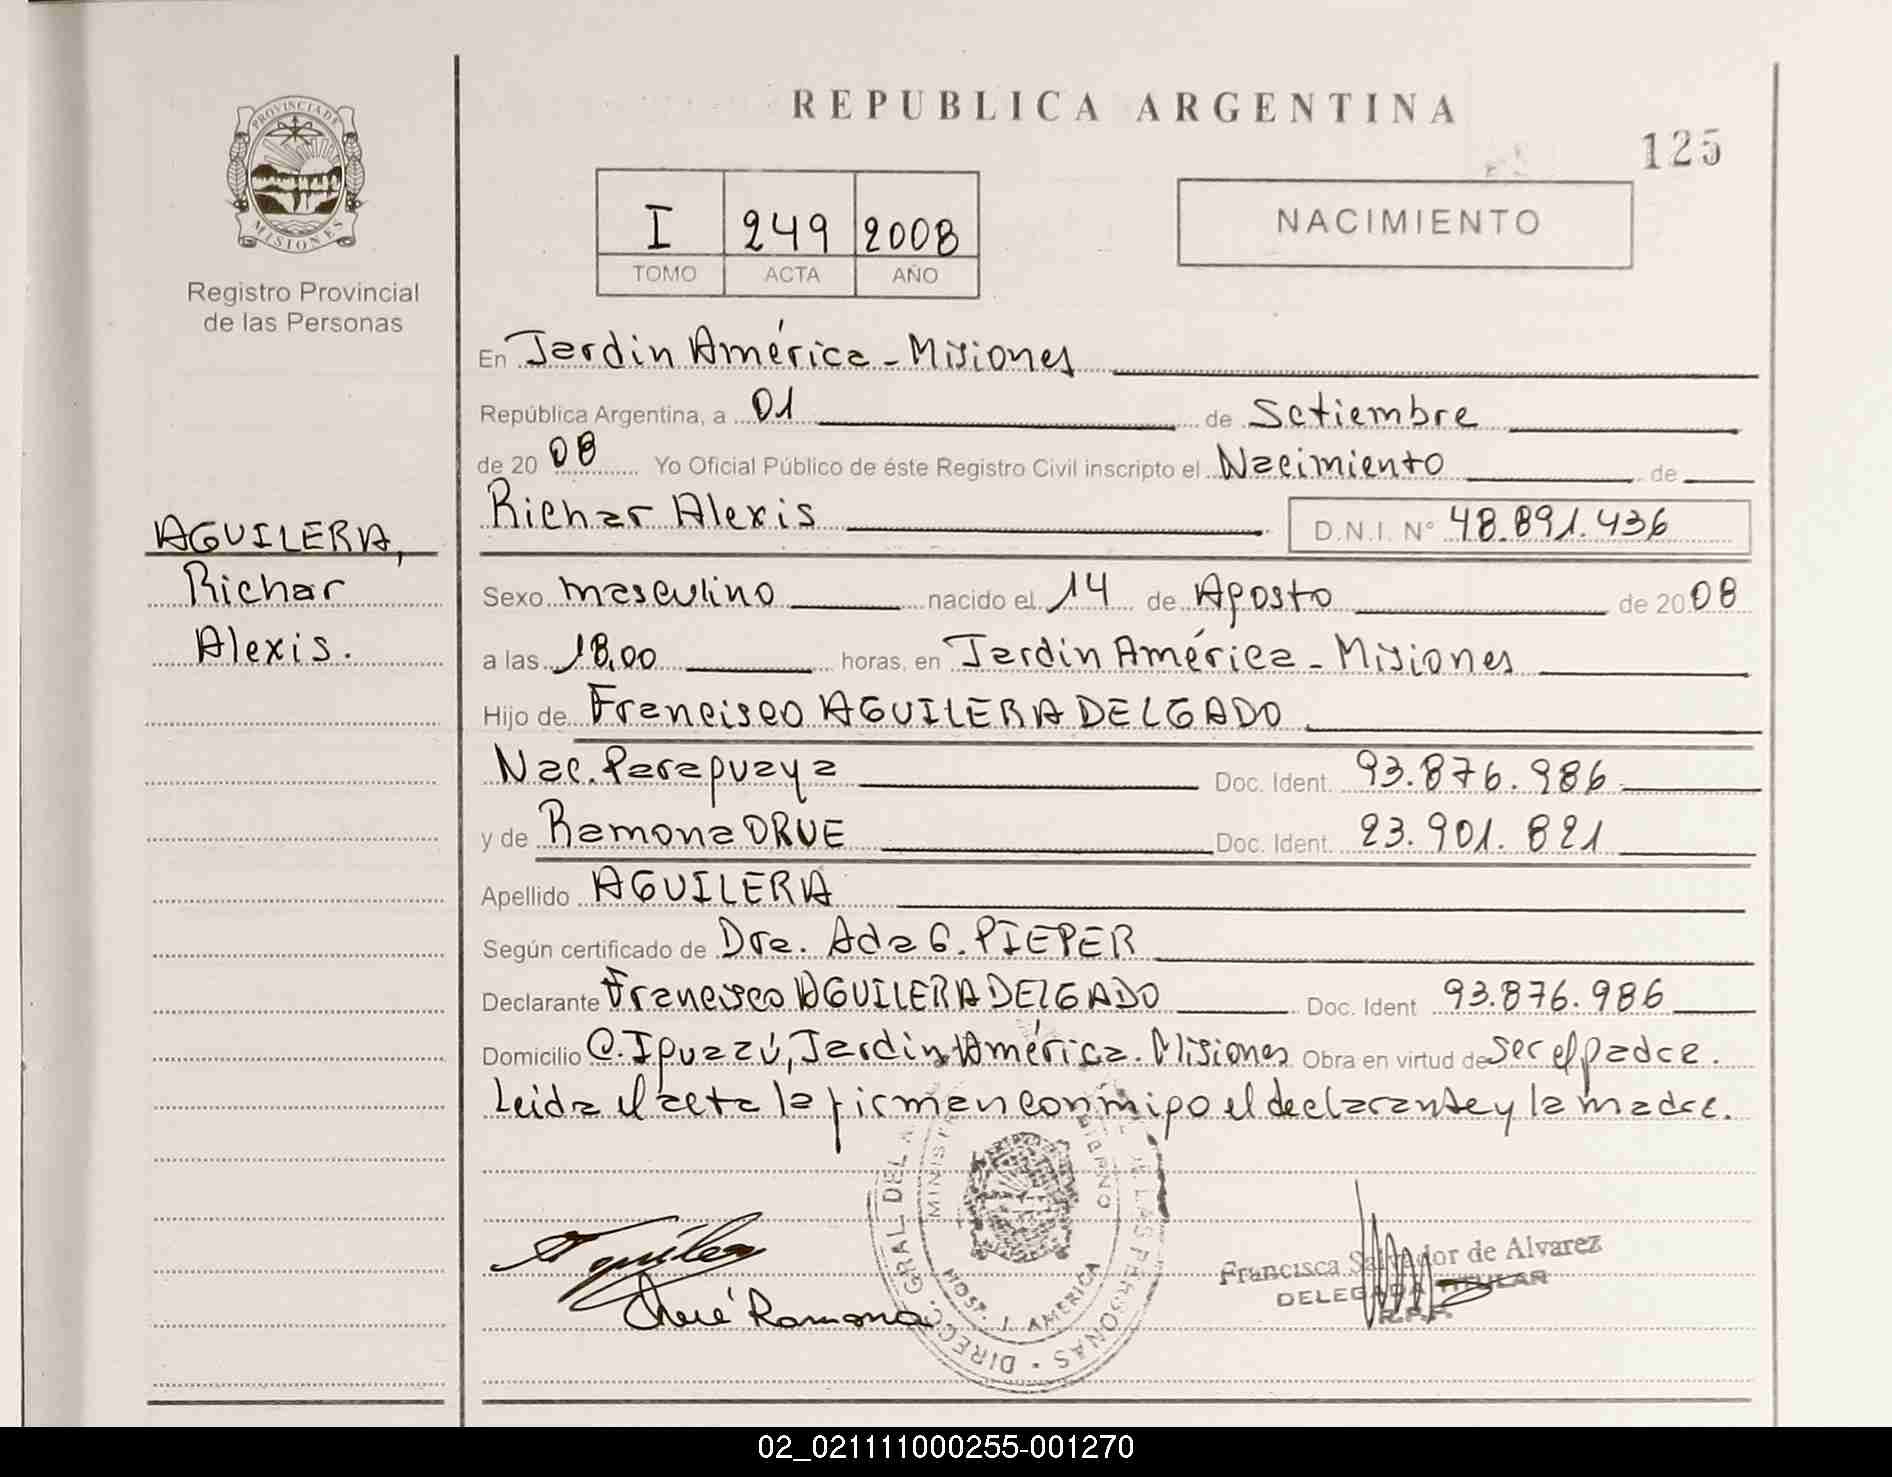 REPUBLICA ARGENTINA
125
PROVINCIA DE
MISIONES
Registro Provincial
de las Personas
I 249 2008
TOMO ACTA AÑO
NACIMIENTO
AGUILERA,
Richar
Alexis.
En Jardin América - Misiones
República Argentina, a 01 de Setiembre
de 20 08 Yo Oficial Público de éste Registro Civil inscripto el Nacimiento de
Richar Alexis D.N.I. N° 48.891.436
Sexo masculino nacido el 14 de Agosto de 20 08
a las 18,00 horas, en Jardin América - Misiones
Hijo de Francisco AGUILERA DELGADO
Nac. Paraguaya Doc. Ident. 93.876.986
y de Ramona ORUE Doc. Ident. 23.901.821
Apellido AGUILERA
Según certificado de Dra. Ada G. PIEPER
Declarante Francisco AGUILERA DELGADO Doc. Ident 93.876.986
Domicilio C. Iguazú, Jardin América. Misiones Obra en virtud de ser el padre.
Leida el acta la firman conmigo el declarante y la madre.
DIRECC. GRAL DEL LAS PERSONAS
HOSP. J. AMERICA
Aguilera
Orué Ramona
Francisca Salvador de Alvarez
DELEGADA TITULAR
R.P.P.
02_021111000255-001270